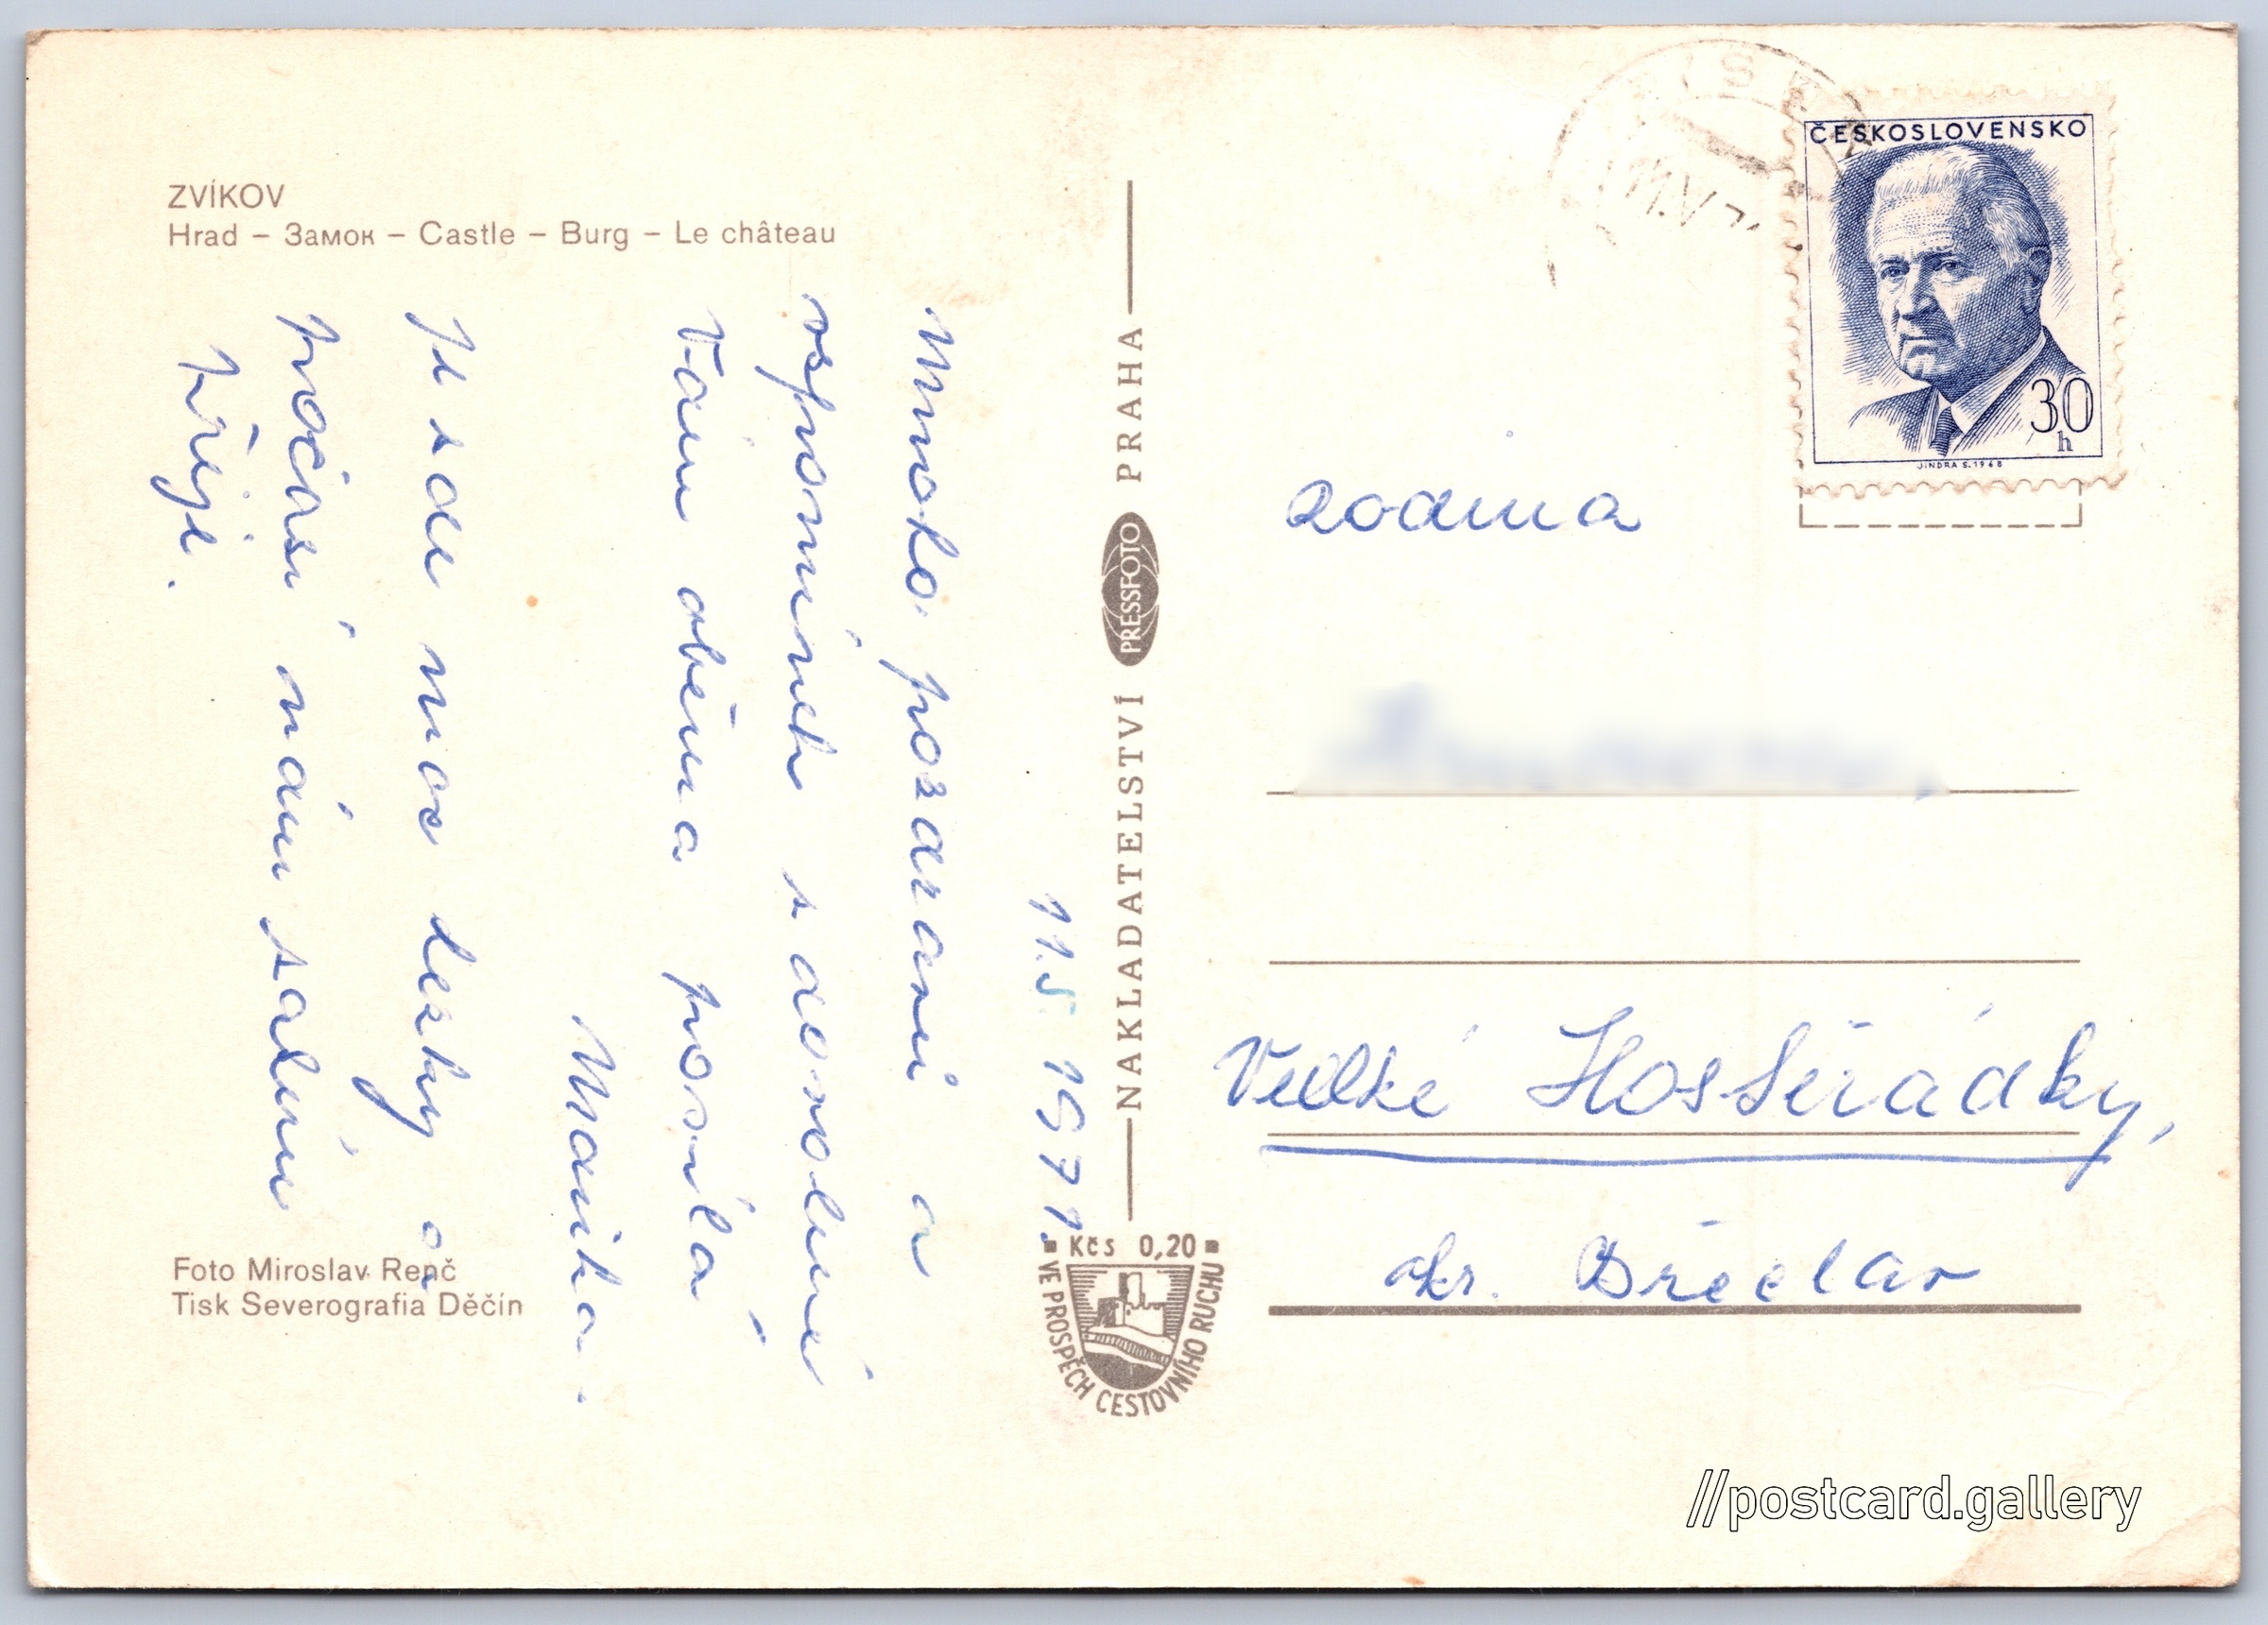 ZVÍKOV
Hrad – Замок – Castle – Burg – Le château
11.5. 1971.
Mnoho pozdravů a
vzpomínek s dovolené
Vám oběma posílá
Mařka.
Je zde moc hezky a
počasí nám zatím
přeje.
Foto Miroslav Renč
Tisk Severografia Děčín
NAKLADATELSTVÍ PRESSFOTO PRAHA
Kčs 0,20
VE PROSPĚCH CESTOVNÍHO RUCHU
ČESKOSLOVENSKO
30
h
JINDRA S. 1968
Rodina
Velké Hostěrádky,
okr. Břeclav
//postcard.gallery